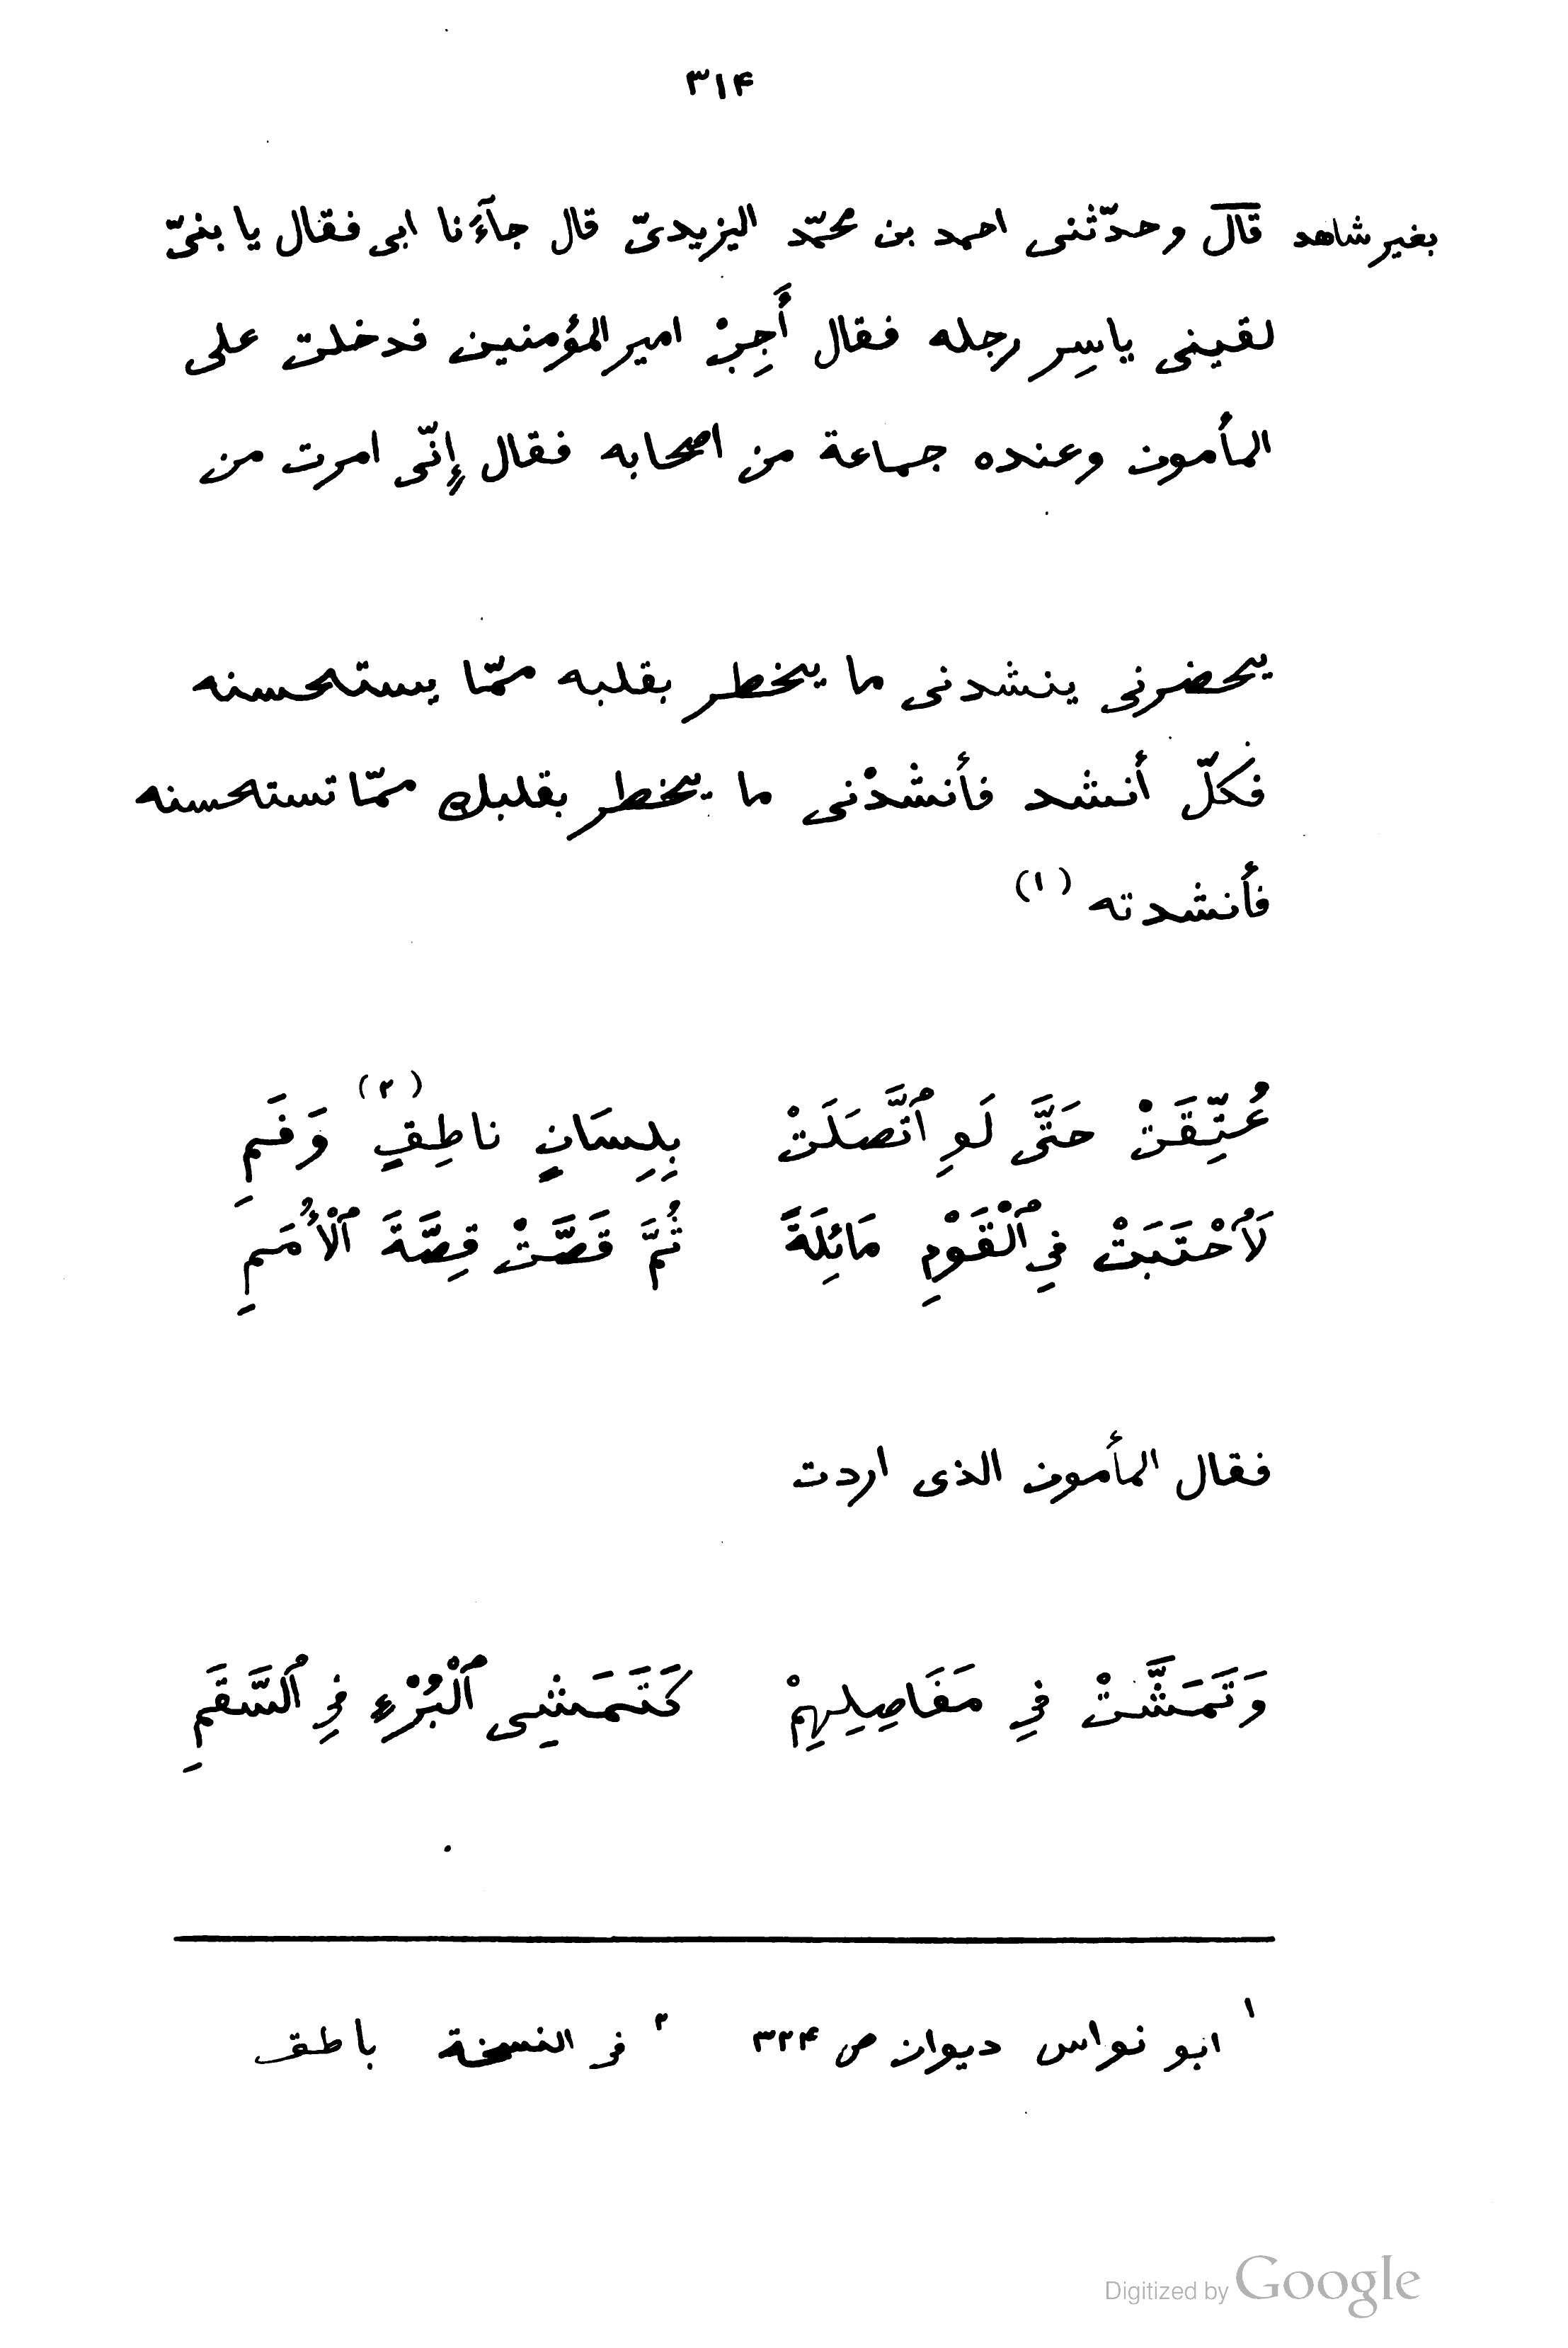 ٣١۴
بغير شاهد قال وحدّثنى احمد بن محمّد اليزيدىّ قال جآءَنا ابى فقال يا بنىّ
لقينى ياسِر رجله فقال أَجِبْ امير المؤمنين فدخلت على
المأمون وعنده جماعة من اصحابه فقال إِنّى امرت من
يحضرنى ينشدنى ما يخطر بقلبه ممّا يستحسنه
فكلّ أنشد فأنشدْنى ما يخطر بقلبك ممّا تستحسنه
فأنشدته (١)
عُتِّقَتْ حَتَّى لَوِ ٱتَّصَلَتْ بِلِسَانٍ ناطِقٍ (٢) وَفَمِ
لَٱحْتَبَتْ فِي ٱلْقَوْمِ مَائِلَةً ثُمَّ قَصَّتْ قِصَّةَ ٱلْأُمَمِ
فقال المأمون الذى اردت
وَتَمَشَّتْ فِي مَفَاصِلِهِمْ كَتَمَشِى ٱلْبُرْءِ فِي ٱلسَّقَمِ
١ ابو نواس ديوان ص ٣٢۴ ٢ فى النسخة باطق
Digitized by Google